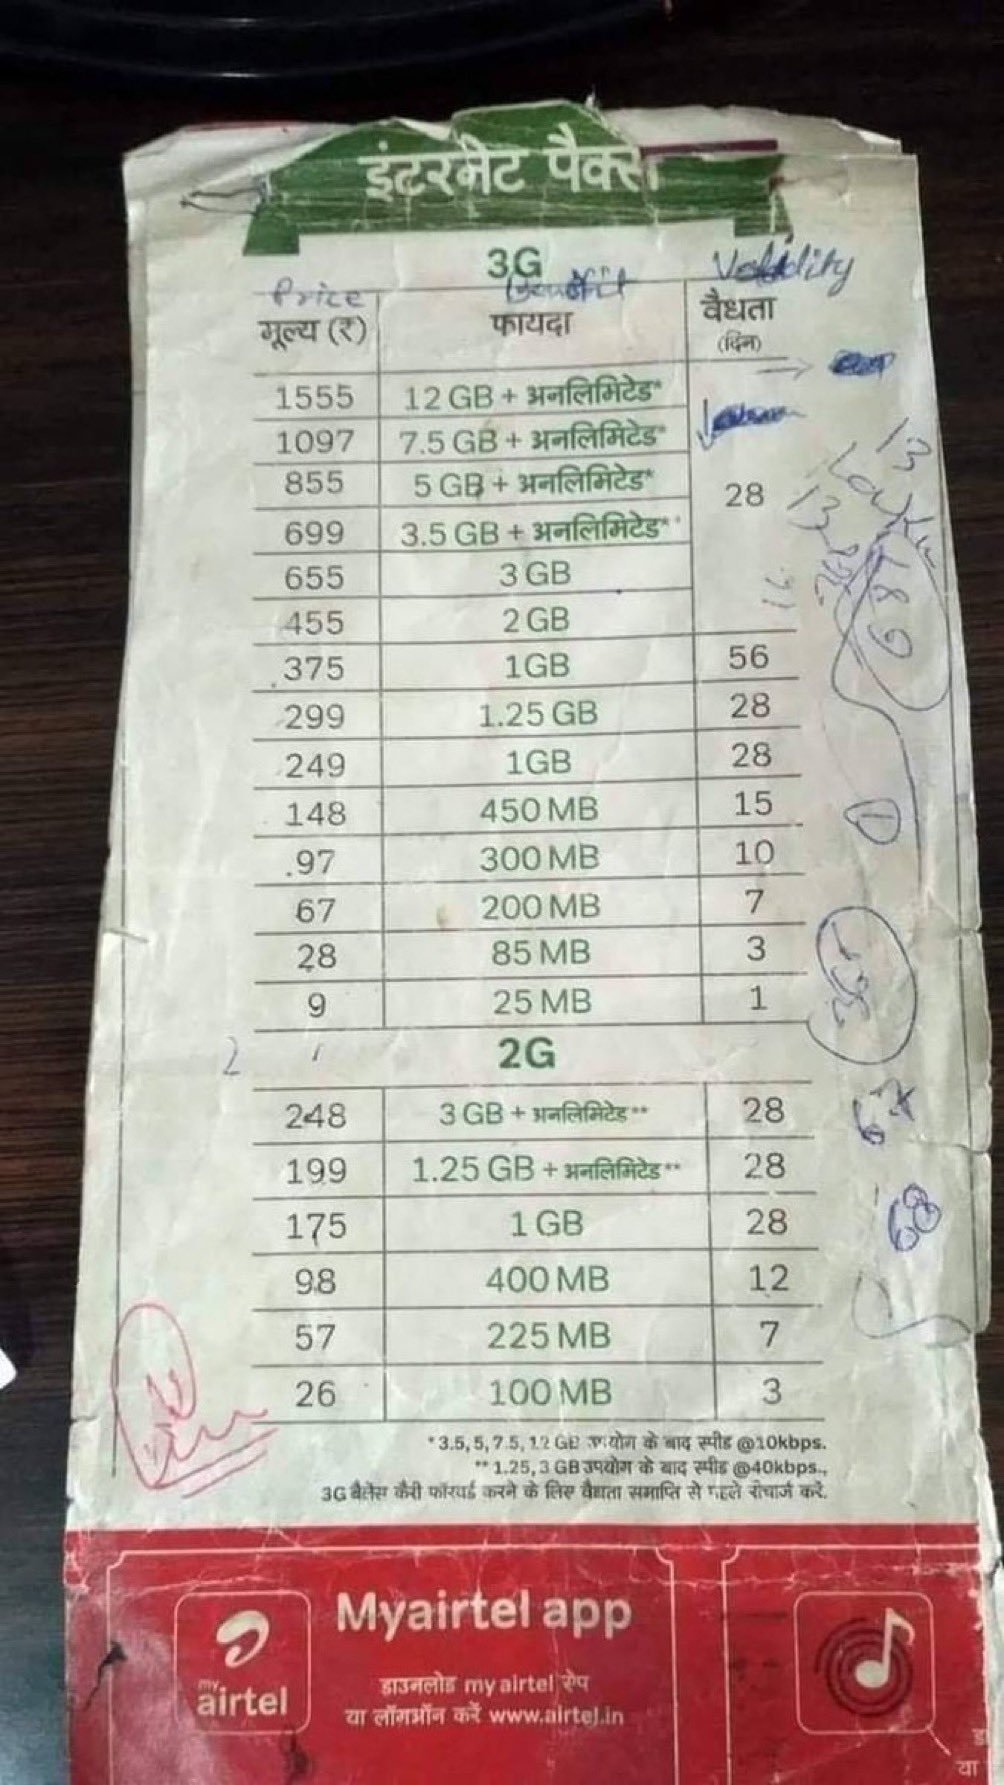 इंटरनेट पैक्स
3G
Price Benefit Validity
मूल्य (₹) फायदा वैधता
(दिन)
1555 12 GB + अनलिमिटेड*
1097 7.5 GB + अनलिमिटेड*
855 5 GB + अनलिमिटेड*
28
699 3.5 GB + अनलिमिटेड*
655 3 GB
455 2 GB
375 1GB 56
299 1.25 GB 28
249 1GB 28
148 450 MB 15
97 300 MB 10
67 200 MB 7
28 85 MB 3
9 25 MB 1
2G
248 3 GB + अनलिमिटेड** 28
199 1.25 GB + अनलिमिटेड** 28
175 1 GB 28
98 400 MB 12
57 225 MB 7
26 100 MB 3
*3.5, 5, 7.5, 12 GB उपयोग के बाद स्पीड @10kbps.
**1.25, 3 GB उपयोग के बाद स्पीड @40kbps.,
3G बैलेंस कैरी फॉरवर्ड करने के लिए वैधता समाप्ति से पहले रीचार्ज करें.
Myairtel app
my
airtel
डाउनलोड my airtel ऐप
या लॉगऑन करें www.airtel.in
या
13
68